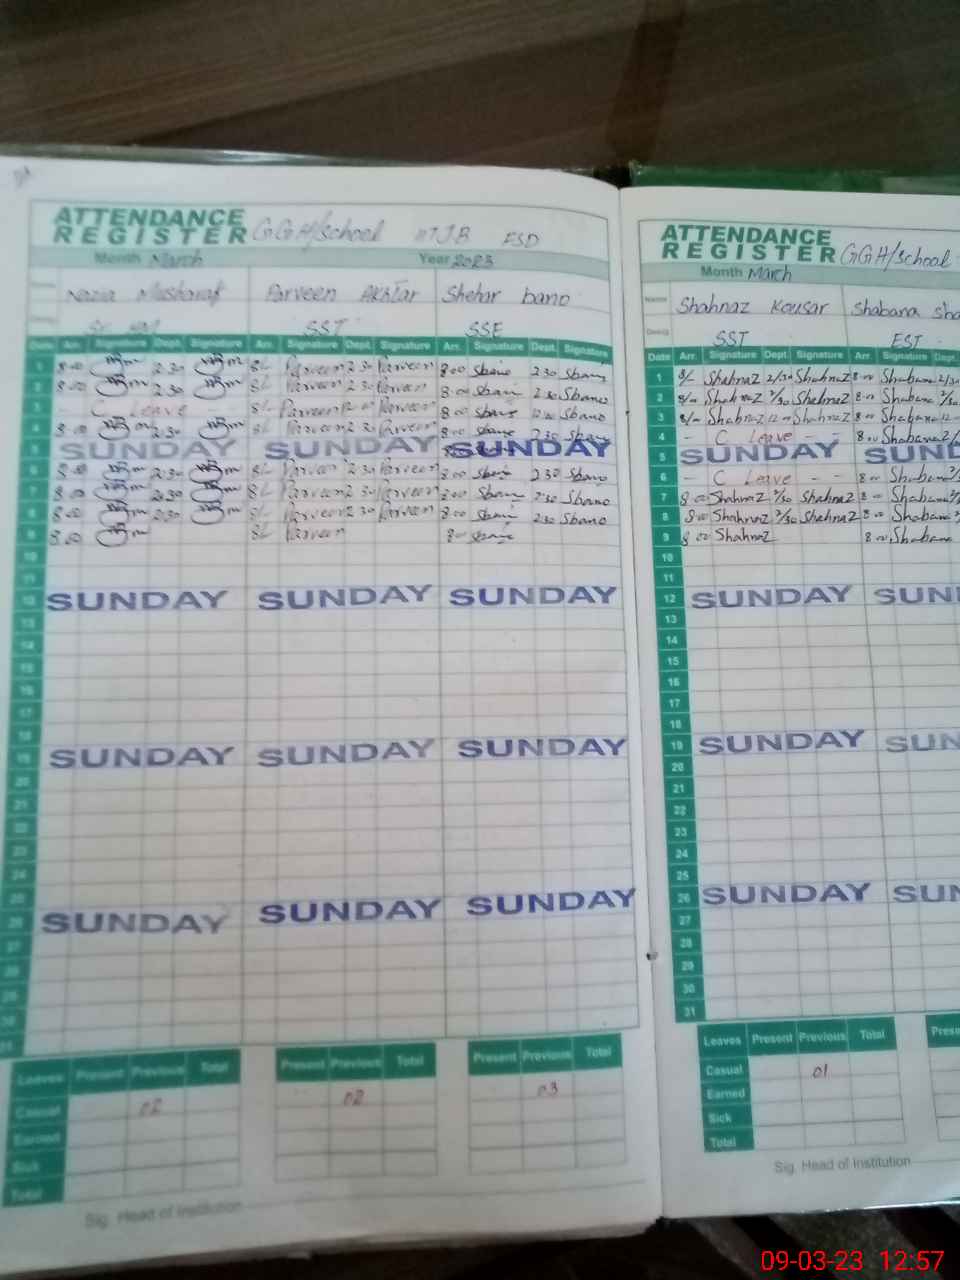 ATTENDANCE
REGISTER GGH/School JB FSD
Month March Year 2023
Nazia Musharaf Parveen Akhtar Shehar bano
SST SSE
Date Arr. Signature Dept. Signature Arr. Signature Dept. Signature Arr. Signature Dept. Signature
1 8:00 2:30 8/- Parveen 2:30 Parveen 8:00 Sbano 2:30 Sbano
2 8:00 2:30 8/- Parveen 2:30 Parveen 8:00 Sbano 2:30 Sbano
3 - C Leave - 8/- Parveen 12:00 Parveen 8:00 Sbano 12:00 Sbano
4 8:00 2:30 8/- Parveen 2:30 Parveen 8:00 Sbano 2:30 Sbano
5 SUNDAY SUNDAY SUNDAY
6 8:00 2:30 8/- Parveen 2:30 Parveen 8:00 Sbano 2:30 Sbano
7 8:00 2:30 8/- Parveen 2:30 Parveen 8:00 Sbano 2:30 Sbano
8 8:00 2:30 8/- Parveen 2:30 Parveen 8:00 Sbano 2:30 Sbano
9 8:00 8/- Parveen 8:00 Sbano
10
11
12 SUNDAY SUNDAY SUNDAY
13
14
15
16
17
18
19 SUNDAY SUNDAY SUNDAY
20
21
22
23
24
25
26 SUNDAY SUNDAY SUNDAY
27
28
29
30
31
Leaves Present Previous Total Present Previous Total Present Previous Total
Casual 02 02 03
Earned
Sick
Total
Sig. Head of Institution
ATTENDANCE
REGISTER GGH/School
Month March
Name Shahnaz Kousar Shabana
Desig. SST EST
Date Arr. Signature Dept. Signature Arr. Signature Dept.
1 8/- Shahnaz 2/30 Shahnaz 8:00 Shabana 2/30
2 8/- Shahnaz 2/30 Shahnaz 8:00 Shabana 2/30
3 8/- Shahnaz 12:00 Shahnaz 8:00 Shabana 12
4 - C Leave - - 8:00 Shabana 2/
5 SUNDAY
6 - C Leave - - 8:00 Shabana
7 8:00 Shahnaz 2/30 Shahnaz 8:00 Shabana
8 8:00 Shahnaz 2/30 Shahnaz 8:00 Shabana
9 8:00 Shahnaz 8:00 Shabana
10
11
12 SUNDAY
13
14
15
16
17
18
19 SUNDAY
20
21
22
23
24
25
26 SUNDAY
27
28
29
30
31
Leaves Present Previous Total
Casual 01
Earned
Sick
Total
Sig. Head of Institution
09-03-23 12:57